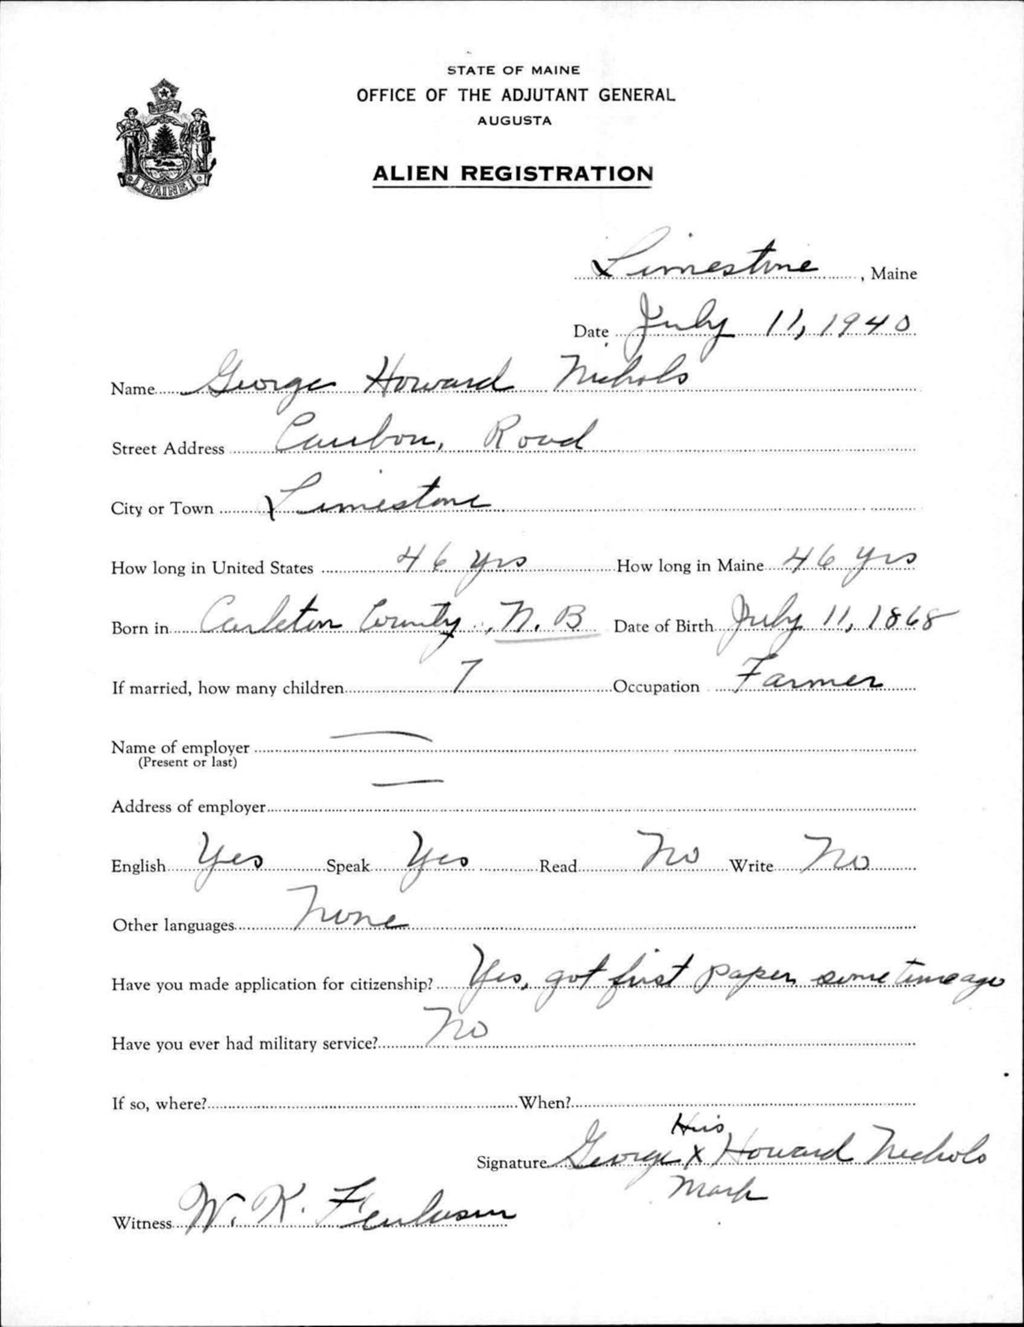 STATE OF MAINE
OFFICE OF THE ADJUTANT GENERAL
AUGUSTA
ALIEN REGISTRATION
MAINE
Limestone, Maine
Date July 11, 1940
Name George Howard Nichols
Street Address Caribou, Road
City or Town Limestone
How long in United States 46 yrs How long in Maine 46 yrs
Born in Carleton County, N.B Date of Birth July 11, 1868
If married, how many children 7 Occupation Farmer
Name of employer —
(Present or last)
Address of employer —
English Yes Speak Yes Read No Write No
Other languages None
Have you made application for citizenship? Yes, got first paper some time ago
Have you ever had military service? No
If so, where? When?
His
Signature George X Howard Nichols
Mark
Witness W. K.